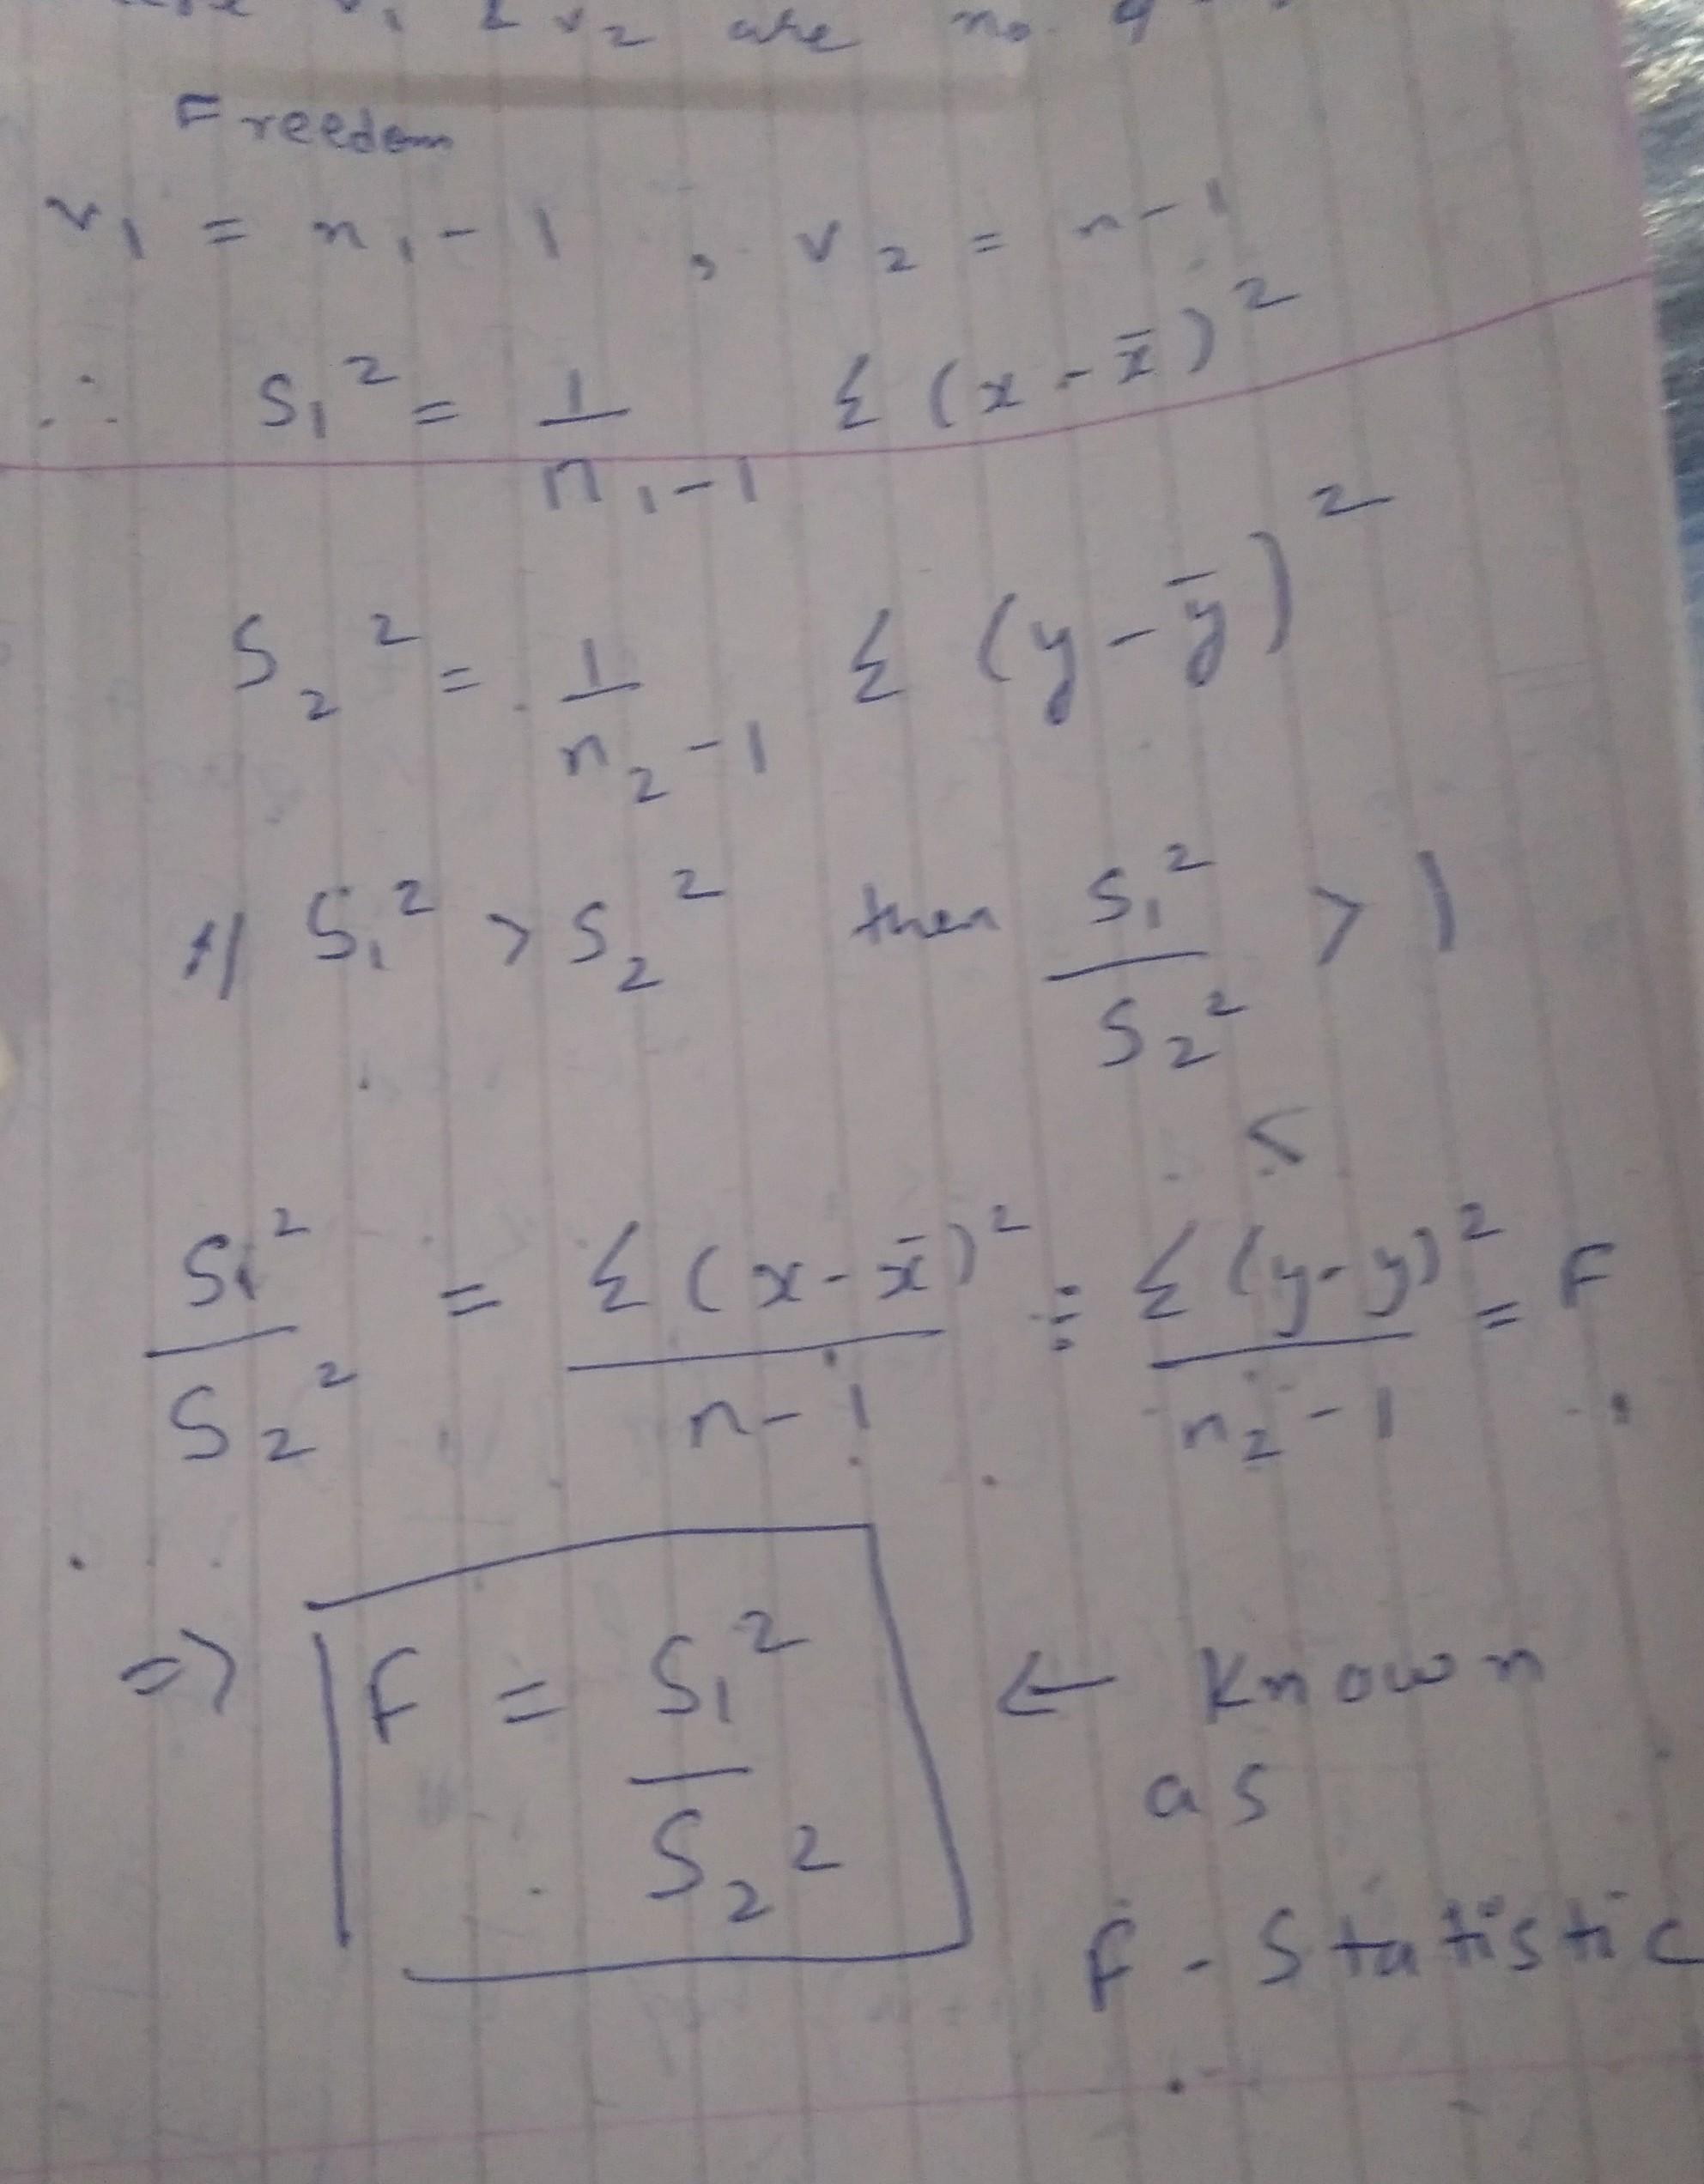 v₁ & v₂ are no.
Freedom
v₁ = n₁ - 1 , v₂ = n - 1
∴ S₁² = 1/(n₁-1) Σ (x - x̄)²
S₂² = 1/(n₂-1) Σ (y - ȳ)²
If S₁² > S₂² then S₁²/S₂² > 1
S₁²/S₂² = Σ(x - x̄)²/(n-1) ÷ Σ(y - y)²/(n₂-1) = F
=> F = S₁²/S₂² ← Known
as
F - Statistic